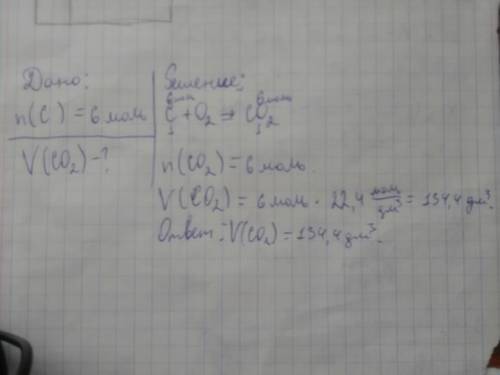 Дано:
n(C) = 6 моль
V(CO₂) - ?
Решение:
6 моль 6 моль
C + O₂ → CO₂
1 1
n(CO₂) = 6 моль.
V(CO₂) = 6 моль · 22,4 моль/дм³ = 134,4 дм³.
Ответ: V(CO₂) = 134,4 дм³.